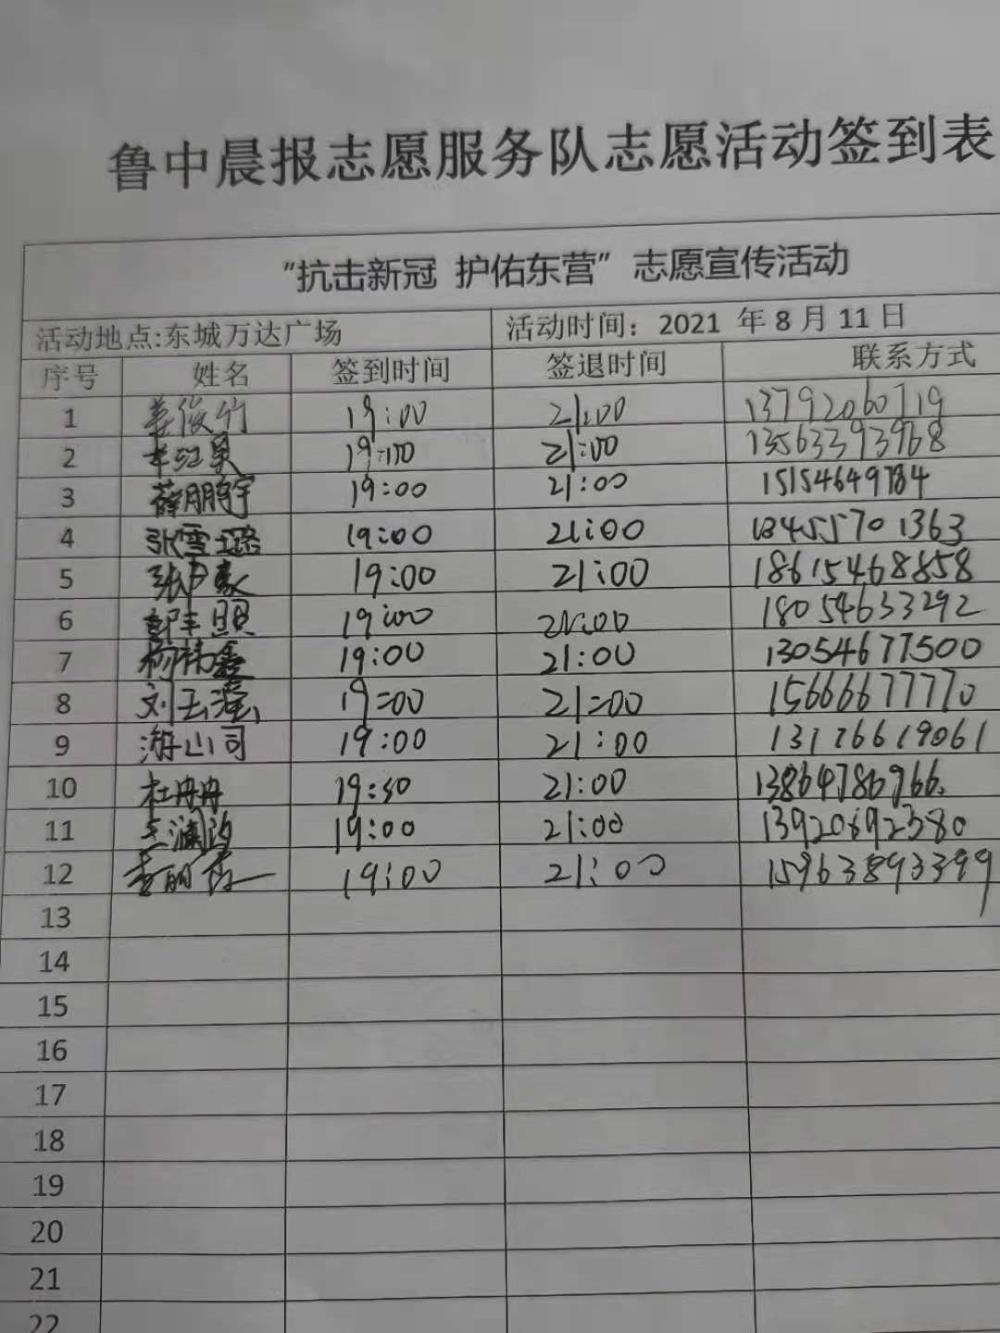 鲁中晨报志愿服务队志愿活动签到表
“抗击新冠 护佑东营”志愿宣传活动
活动地点:东城万达广场 活动时间：2021 年 8 月 11 日
序号 姓名 签到时间 签退时间 联系方式
1 姜俊竹 19:00 21:00 13792060719
2 19:00 21:00 13563393968
3 薛鹏宇 19:00 21:00 15154649784
4 张雪璐 19:00 21:00 13455701363
5 19:00 21:00 18615468858
6 19:00 21:00 18054633292
7 杨祎鑫 19:00 21:00 13054677500
8 刘玉滢 19:00 21:00 15666677770
9 游山司 19:00 21:00 13176619061
10 杜冉冉 19:30 21:00 13864786966
11 19:00 21:00 13920692380
12 19:00 21:00 15963893399
13
14
15
16
17
18
19
20
21
22